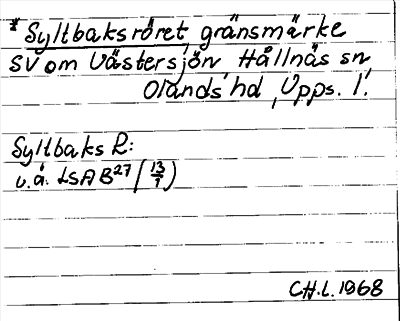 * Syltbaksröret gränsmärke
SV om Västersjön Hållnäs sn,
Olands hd, Upps. l.
Syltbaks R:
u.å. LSA B27 (13/7)
C.H.L. 1968